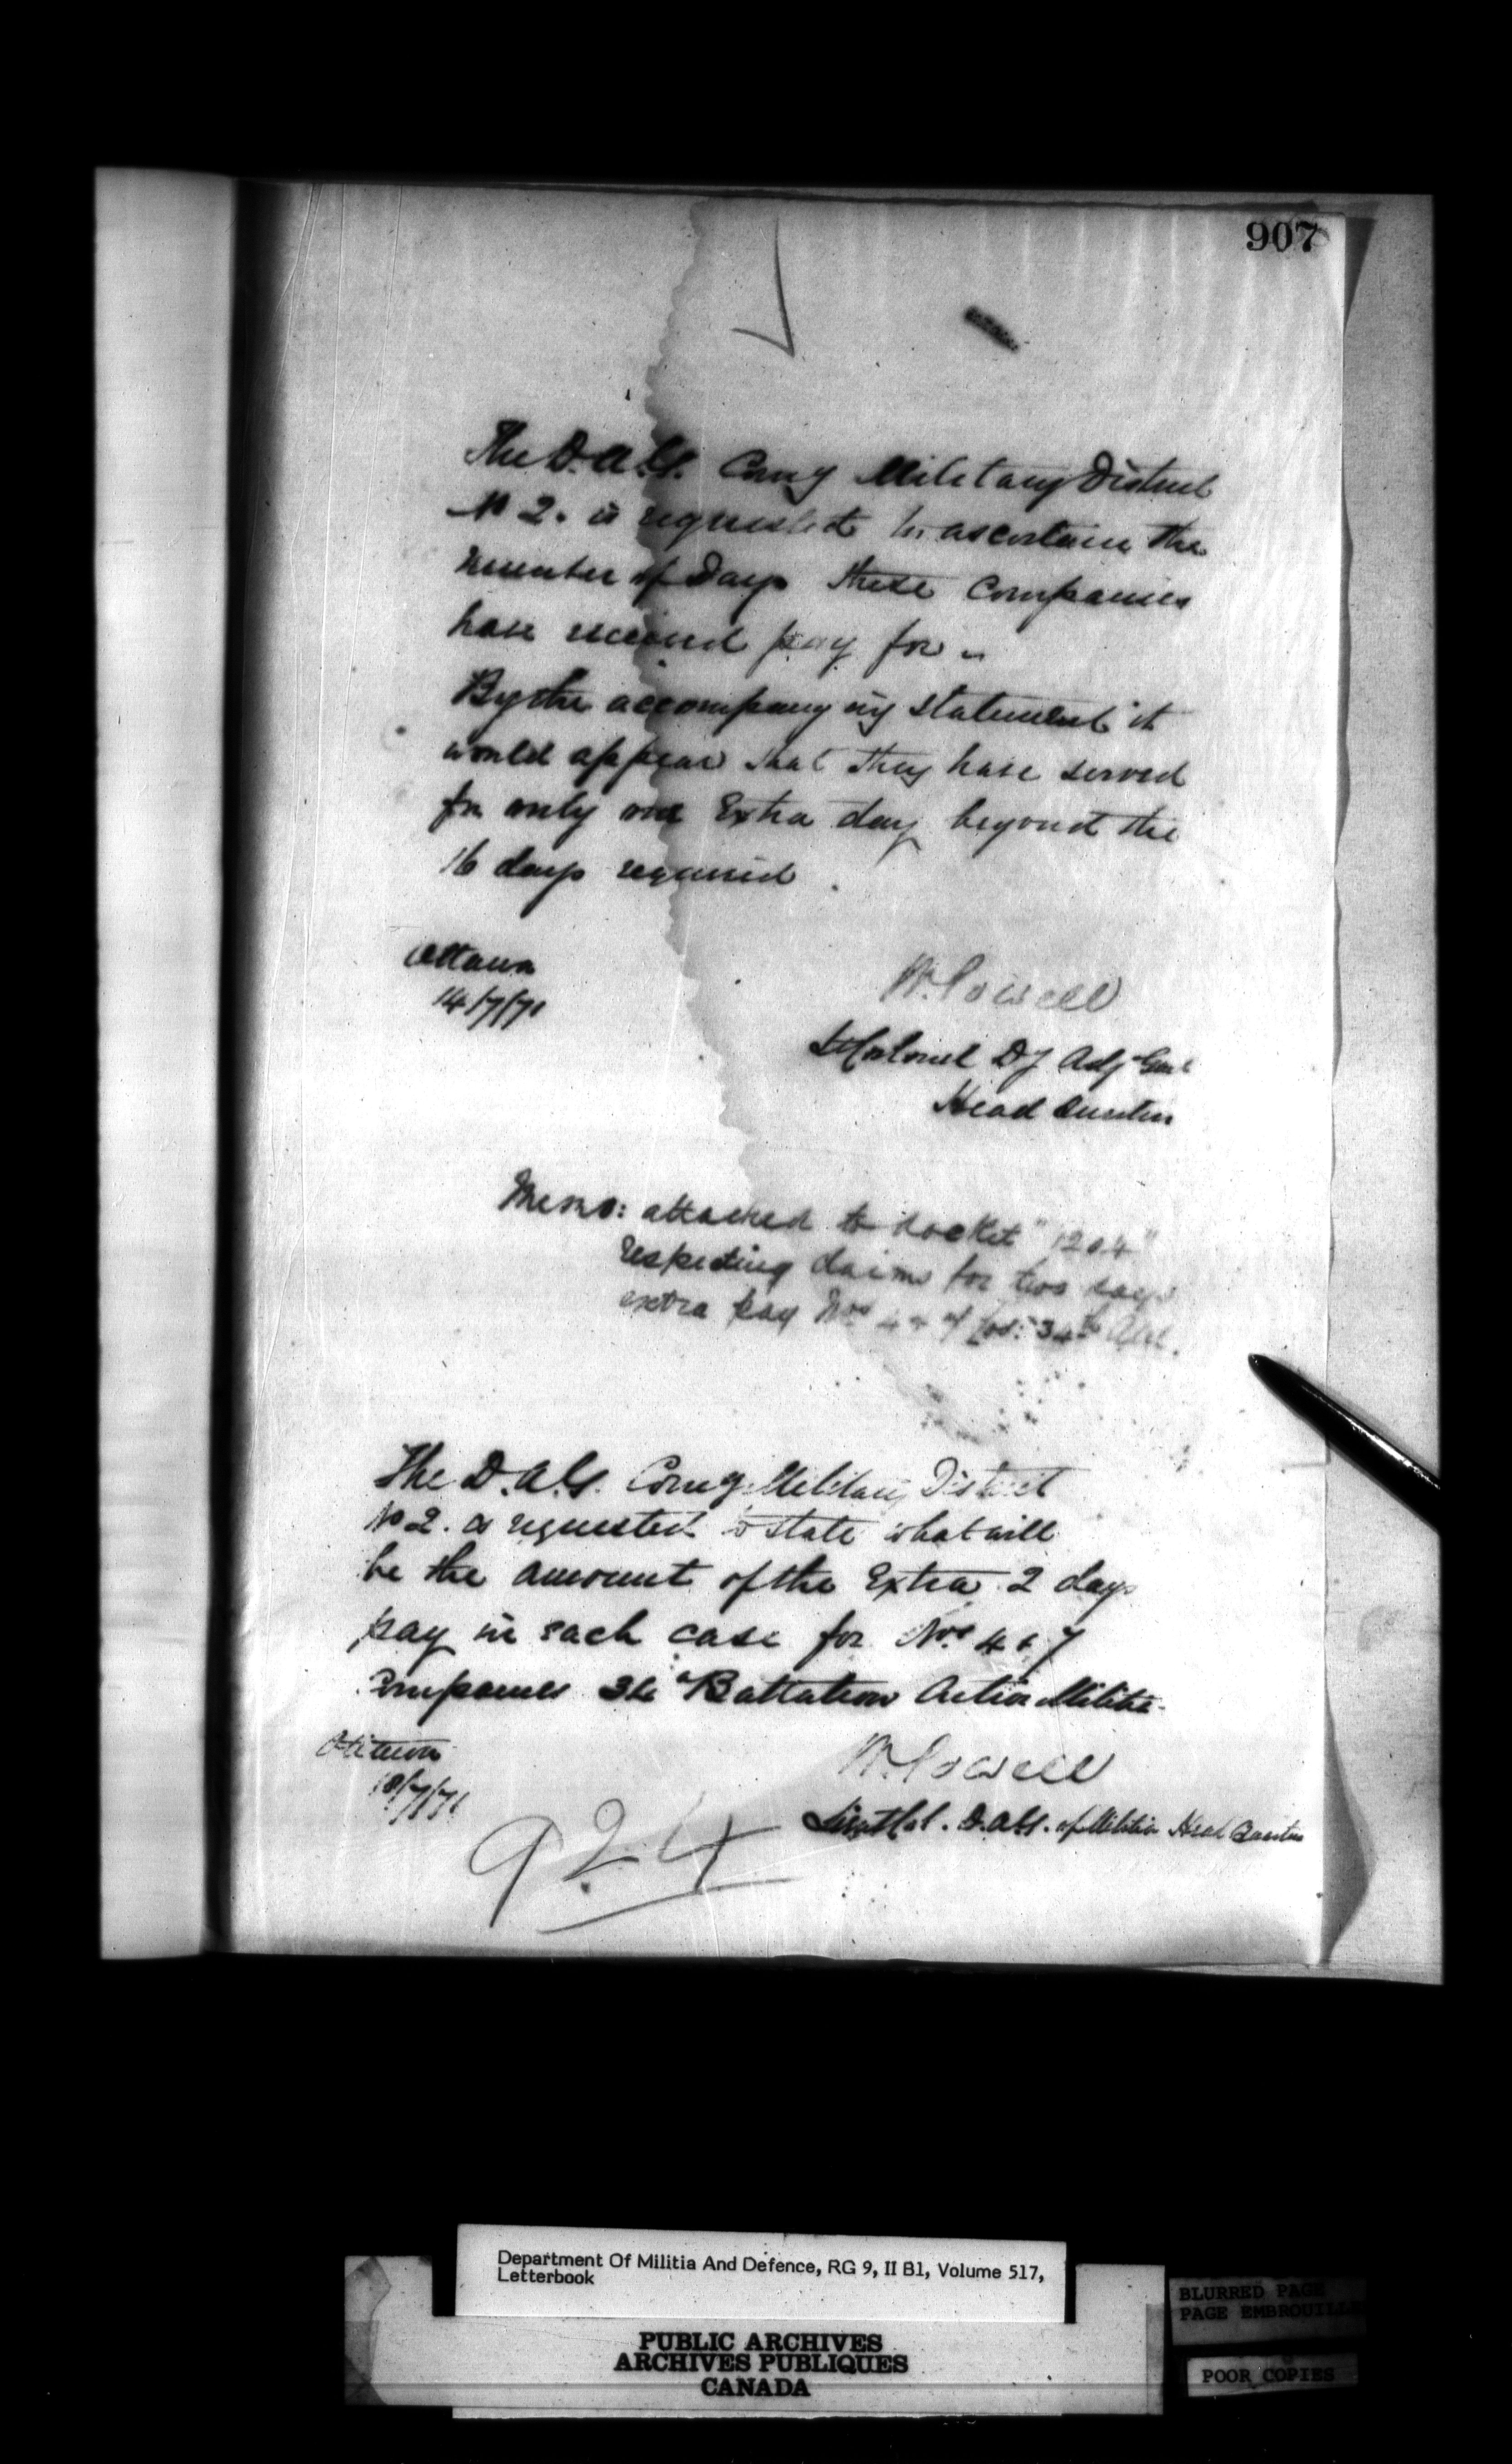 907
The D.A.G. Comg Military District
No 2. is requested to ascertain the
number of Days these Companies
have received pay for
By the accompanying statement it
would appear that they have served
for only one Extra day beyond the
16 days required.
Ottawa
14/7/71
W. Powell
Lt Colonel Dy Adj Genl
Head Quarters
Memo: attached to docket "1204"
respecting claims for two days
extra pay Nos 4 & 7 Cos: 34th
The D.A.G. Comg Military District
No 2. is requested to state what will
be the amount of the Extra 2 days
pay in each case for Nos 4 & 7
Companies 34 Battalion Active Militia
Ottawa
18/7/71
W. Powell
Lieut Col. D.A.G. of Militia Head Quarters
924
Department Of Militia And Defence, RG 9, II B1, Volume 517,
Letterbook
PUBLIC ARCHIVES
ARCHIVES PUBLIQUES
CANADA
BLURRED PAGE
PAGE EMBROUILLÉE
POOR COPIES